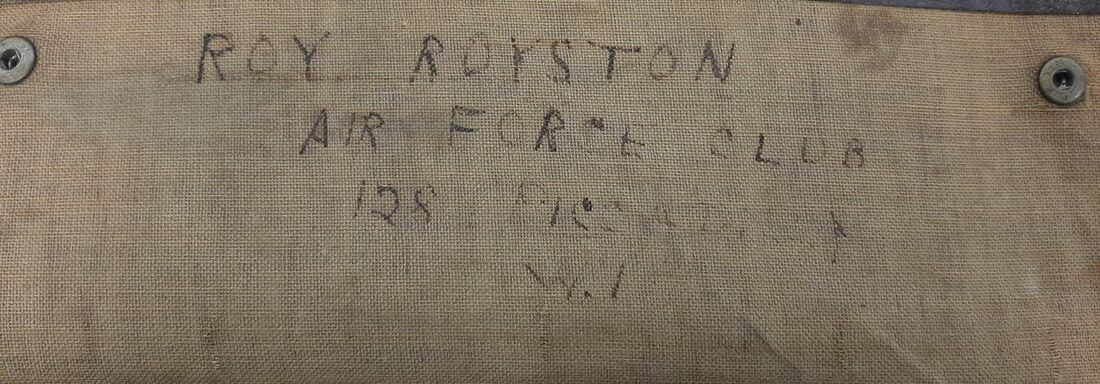 ROY ROYSTON
AIR FORCE CLUB
128 PICCADILLY
W.1